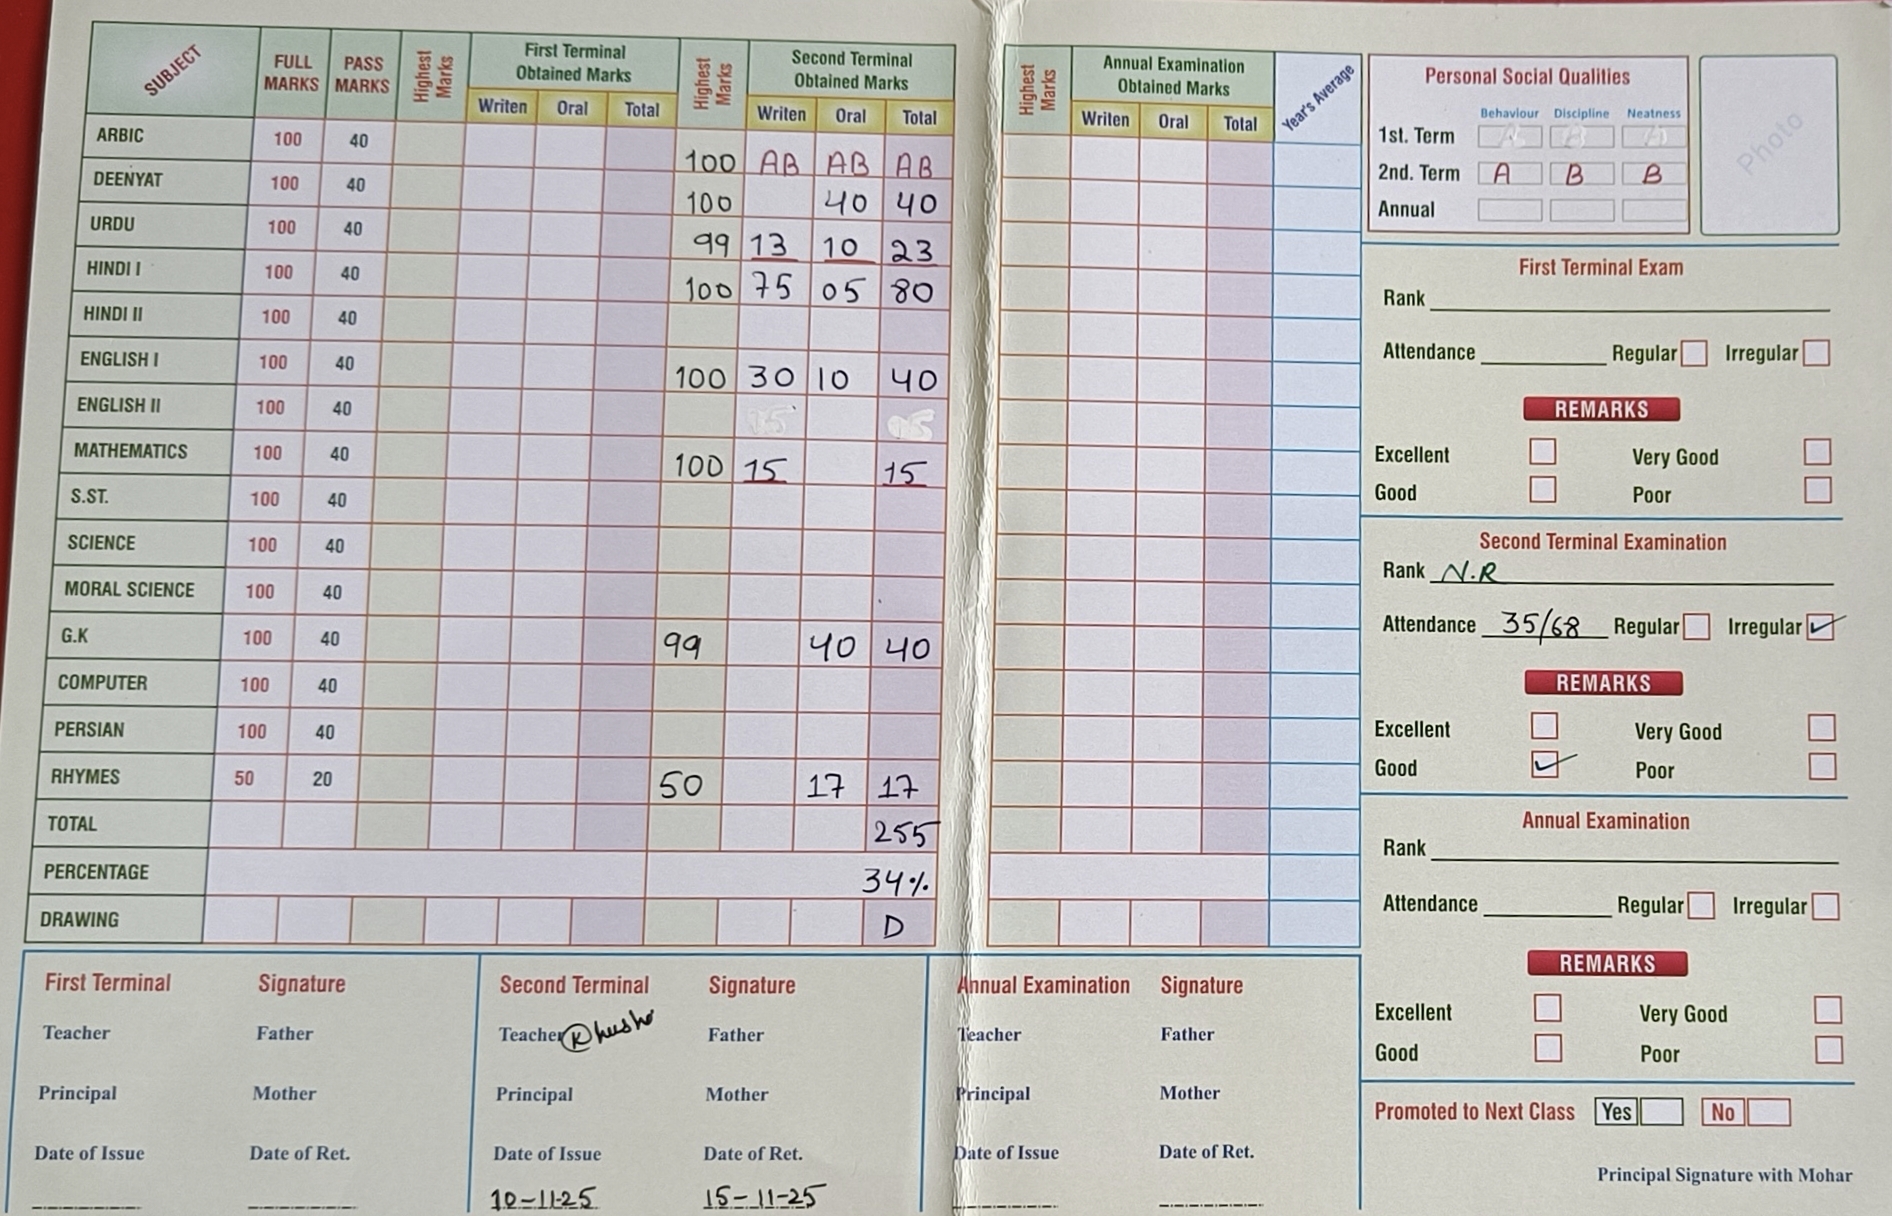 SUBJECT FULL MARKS PASS MARKS Highest Marks First Terminal Obtained Marks Highest Marks Second Terminal Obtained Marks
Writen Oral Total Writen Oral Total
ARBIC 100 40 100 AB AB AB
DEENYAT 100 40 100 40 40
URDU 100 40 99 13 10 23
HINDI I 100 40 100 75 05 80
HINDI II 100 40
ENGLISH I 100 40 100 30 10 40
ENGLISH II 100 40
MATHEMATICS 100 40 100 15 15
S.ST. 100 40
SCIENCE 100 40
MORAL SCIENCE 100 40
G.K 100 40 99 40 40
COMPUTER 100 40
PERSIAN 100 40
RHYMES 50 20 50 17 17
TOTAL 255
PERCENTAGE 34%
DRAWING D
Highest Marks Annual Examination Obtained Marks Year's Average
Writen Oral Total
Personal Social Qualities
Behaviour Discipline Neatness
1st. Term
2nd. Term A B B
Annual
Photo
First Terminal Exam
Rank
Attendance Regular Irregular
REMARKS
Excellent Very Good
Good Poor
Second Terminal Examination
Rank N.R
Attendance 35/68 Regular Irregular
REMARKS
Excellent Very Good
Good Poor
Annual Examination
Rank
Attendance Regular Irregular
REMARKS
Excellent Very Good
Good Poor
Promoted to Next Class Yes No
Principal Signature with Mohar
First Terminal Signature
Teacher Father
Principal Mother
Date of Issue Date of Ret.
Second Terminal Signature
Teacher Father
Principal Mother
Date of Issue Date of Ret.
10-11-25 15-11-25
Annual Examination Signature
Teacher Father
Principal Mother
Date of Issue Date of Ret.